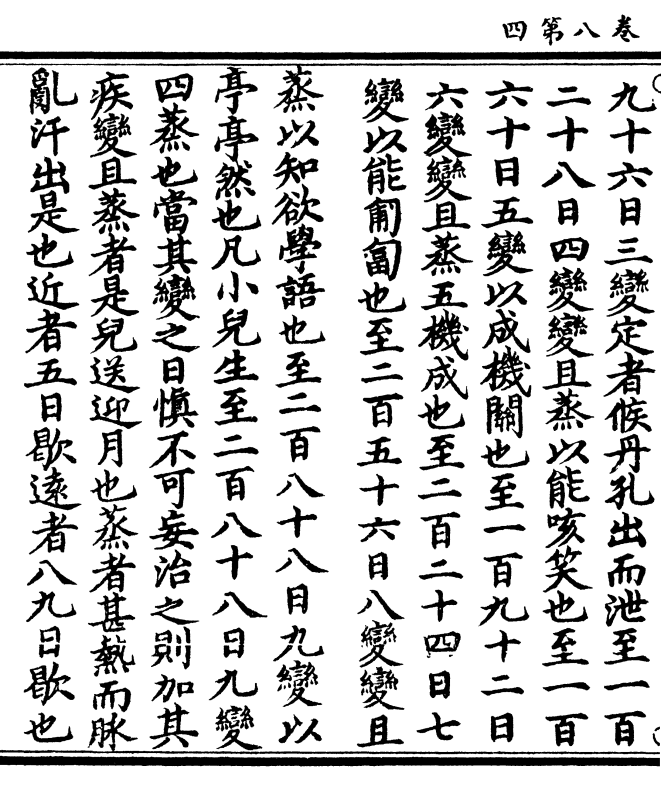 卷八第四
九十六日三變定者候丹孔出而泄至一百
二十八日四變變且蒸以能咳笑也至一百
六十日五變以成機關也至一百九十二日
六變變且蒸五機成也至二百二十四日七
變以能匍匐也至二百五十六日八變變且
蒸以知欲學語也至二百八十八日九變以
亭亭然也凡小兒生至二百八十八日九變
四蒸也當其變之日慎不可妄治之則加其
疾變且蒸者是兒送迎月也蒸者甚熱而脉
亂汗出是也近者五日歇遠者八九日歇也